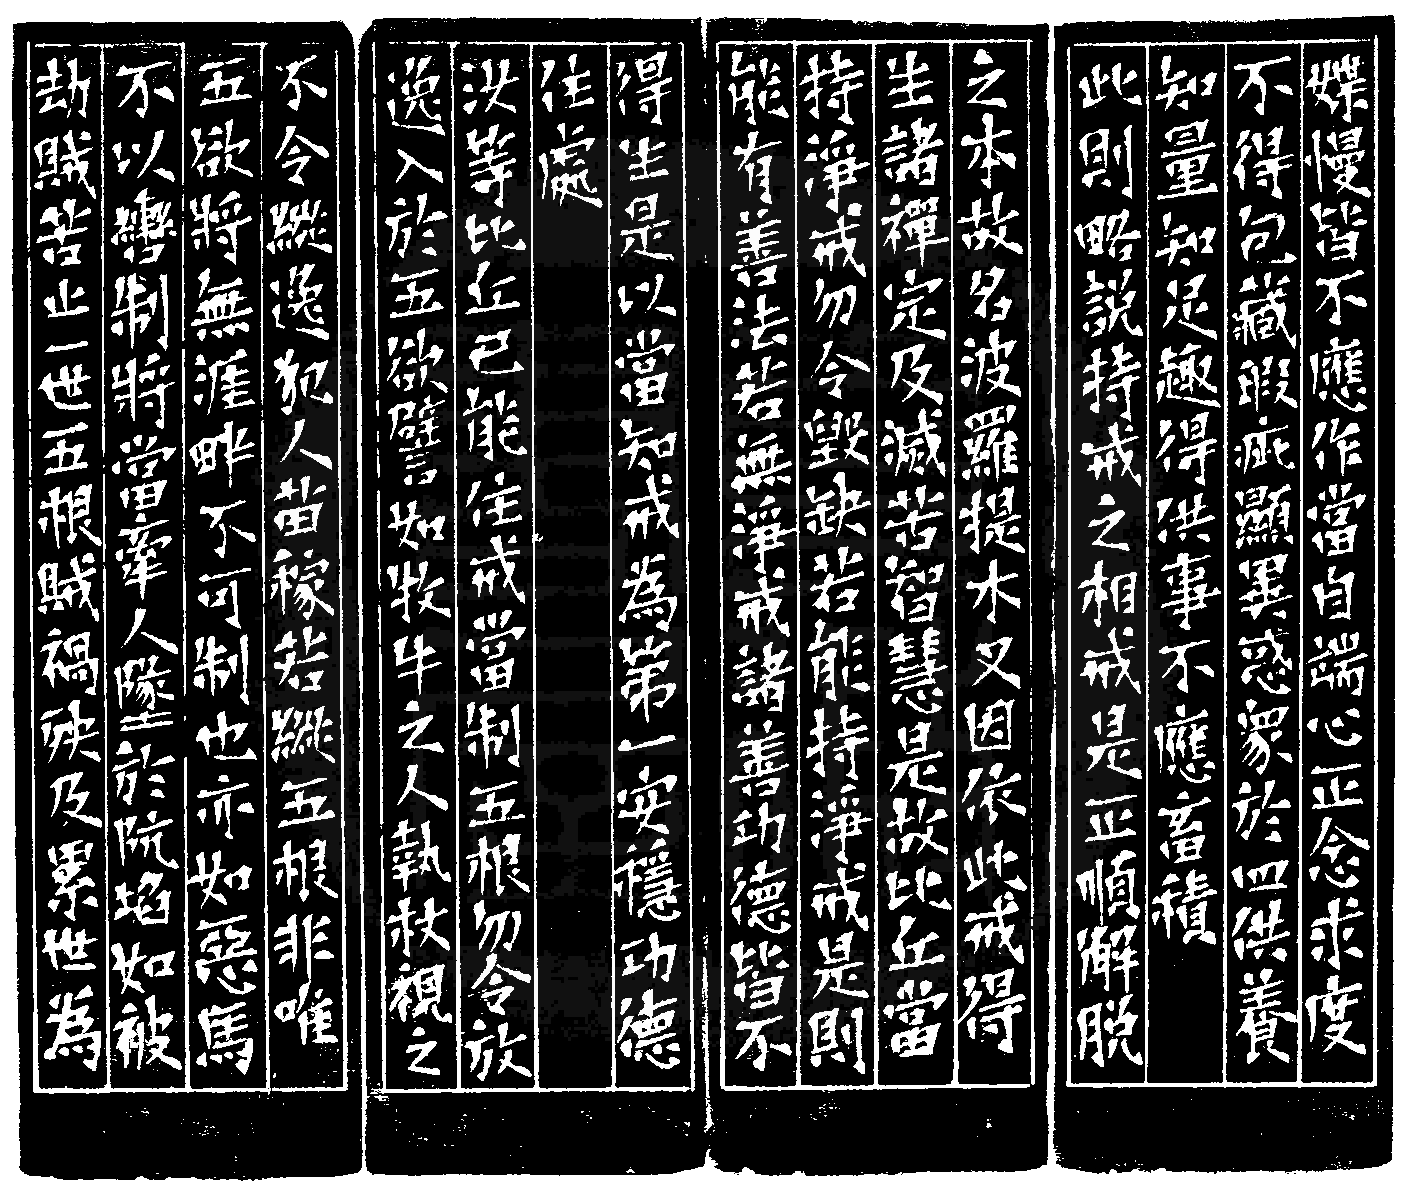 媟慢皆不應作當自端心正念求度
不得包藏瑕疵顯異惑眾於四供養
知量知足趣得供事不應畜積
此則略說持戒之相戒是正順解脫
之本故名波羅提木叉因依此戒得
生諸禪定及滅苦智慧是故比丘當
持淨戒勿令毀缺若能持淨戒是則
能有善法若無淨戒諸善功德皆不
得生是以當知戒為第一安穩功德
住處
汝等比丘已能住戒當制五根勿令放
逸入於五欲譬如牧牛之人執杖視之
不令縱逸犯人苗稼若縱五根非唯
五欲將無涯畔不可制也亦如惡馬
不以轡制將當牽人墜於阬埳如被
劫賊苦止一世五根賊禍殃及累世為